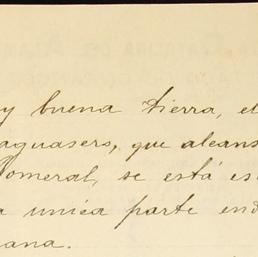 y buena tierra, el
aguasero, que alcans
omeral, se está es
a unica parte end
ana.